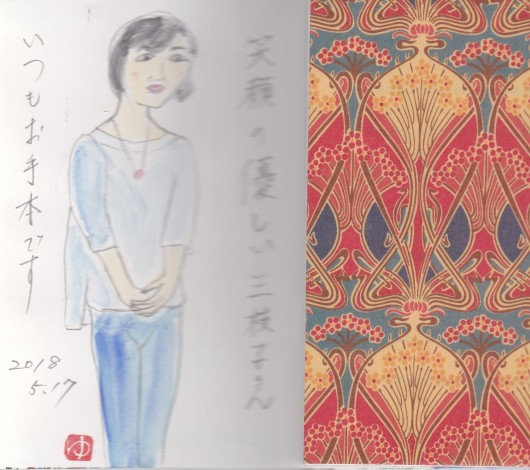 笑顔の優しい三枝子さん
いつもお手本です
2018
5.17
ゆ